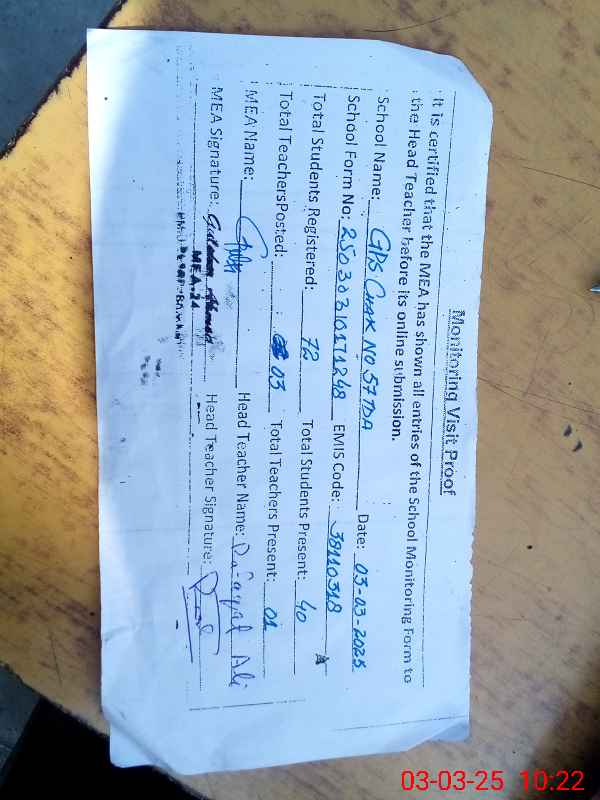 Monitoring Visit Proof
It is certified that the MEA has shown all entries of the School Monitoring Form to
the Head Teacher before its online submission.
School Name: GPS CHAK NO 57 TDA Date: 03-03-2025
School Form No: 25030310171248 EMIS Code: 38110318
Total Students Registered: 72 Total Students Present: 40
Total TeachersPosted: 03 Total Teachers Present: 01
MEA Name: Head Teacher Name: Ali
MEA Signature: Head Teacher Signature:
MEA-24
03-03-25 10:22